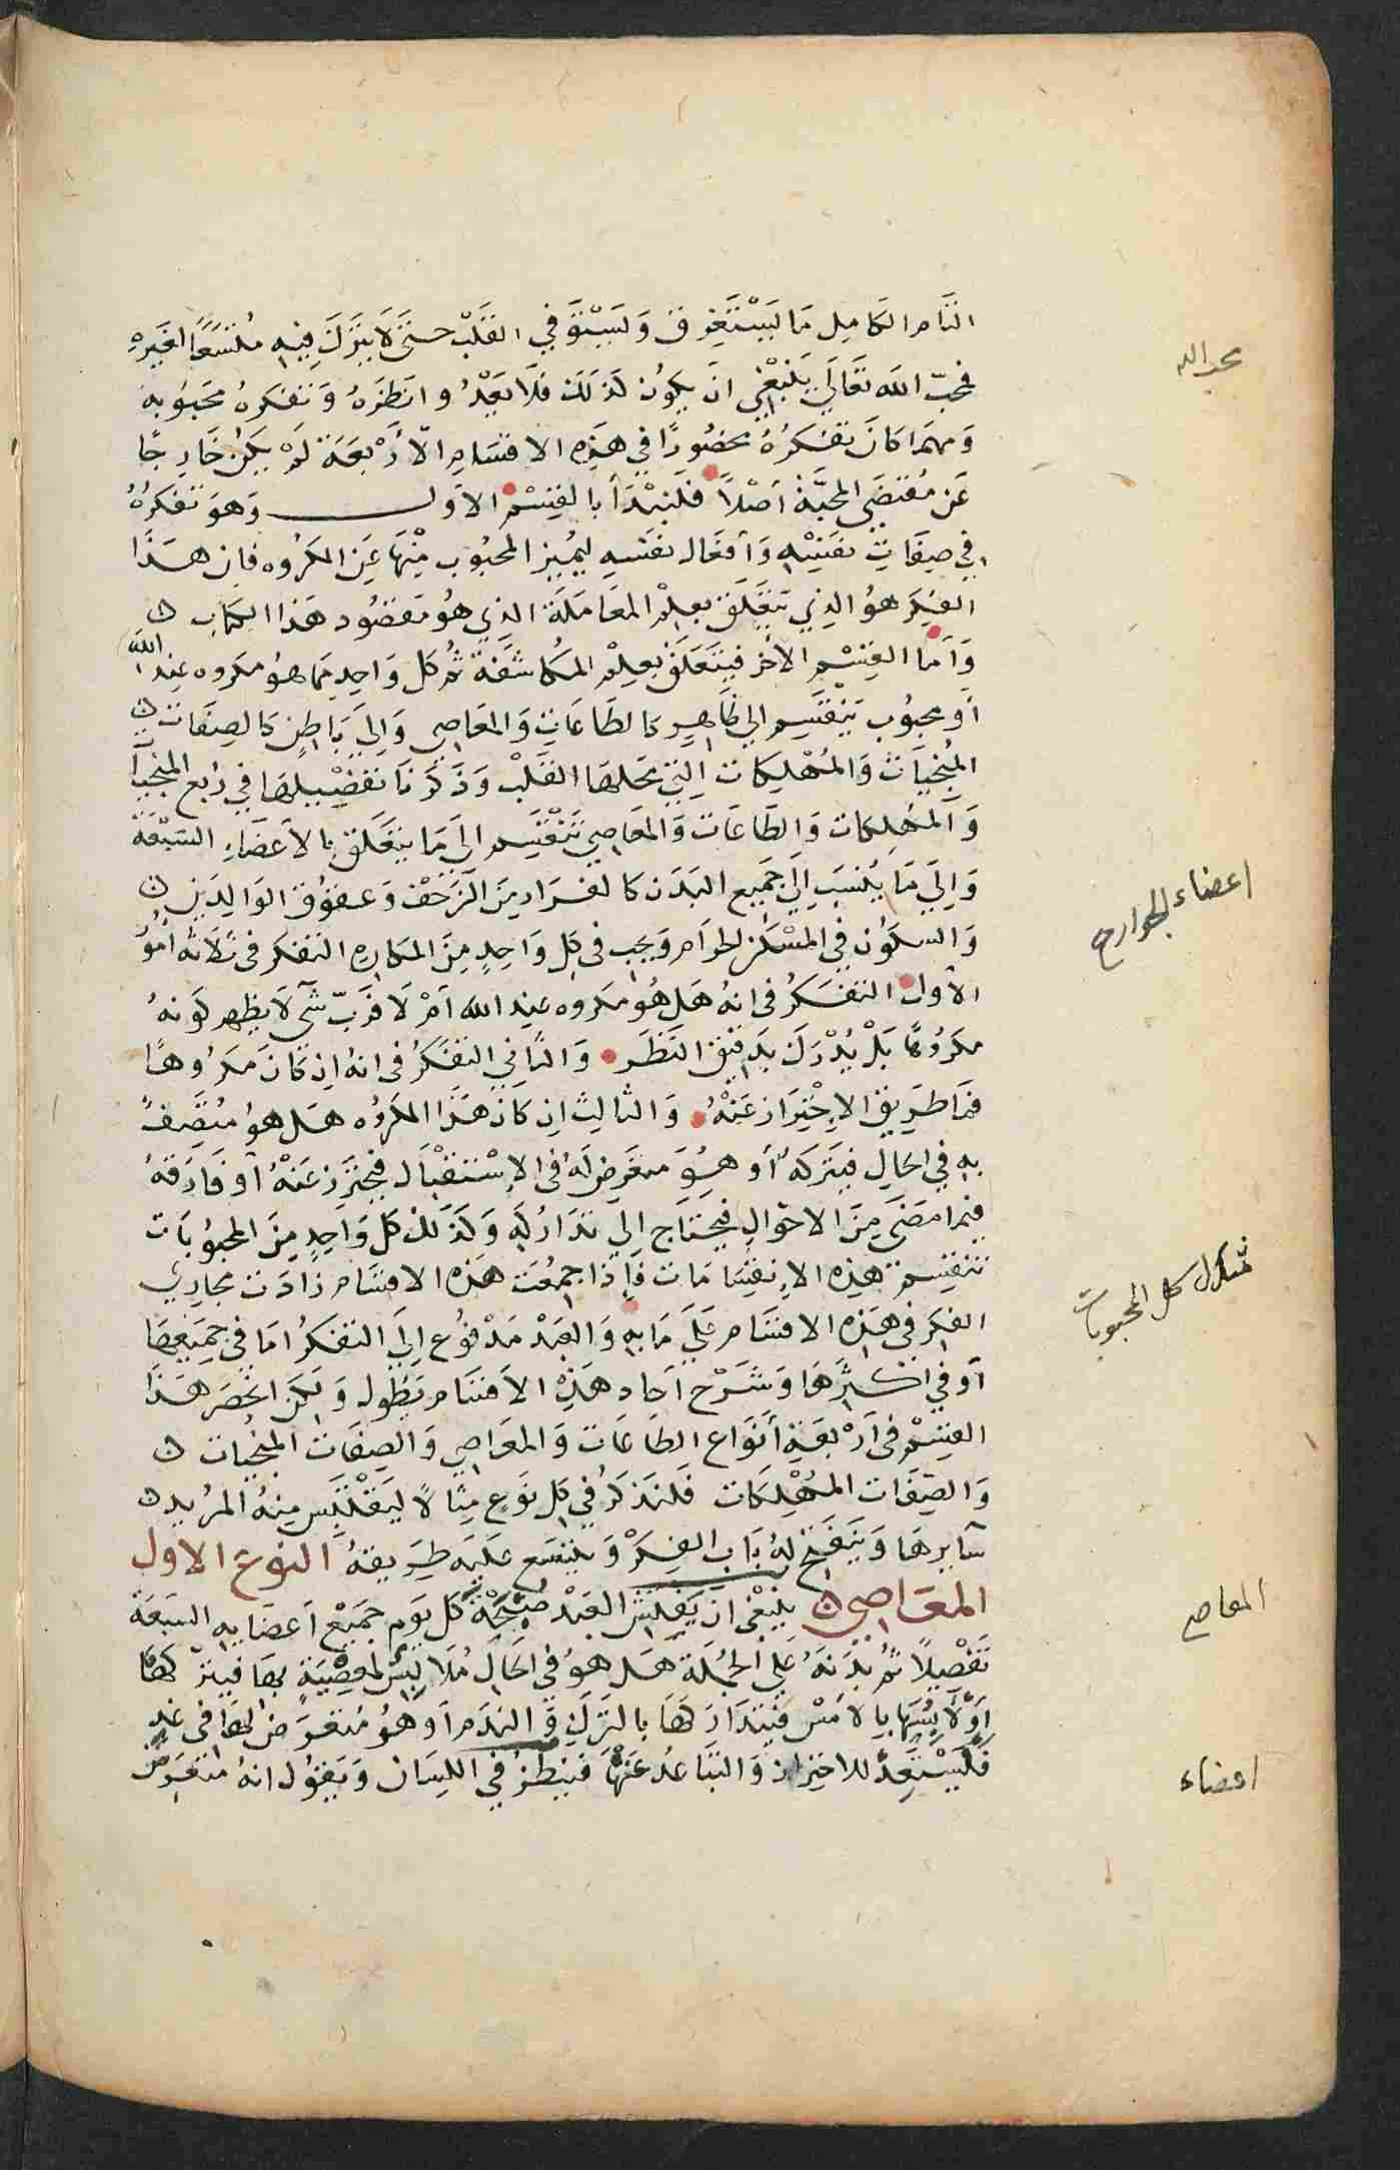 التام الكامل ما يستغرق ويستوفي القلب حتى لا يترك فيه متسعا لغيره
محب الله
فحبّ الله تعالى ينبغي ان يكون كذلك فلا يعد وانظره وتفكره محبوبه
ومهما كان تفكره محصورا في هذه الاقسام الأربعة لم يكن خارجا
عن مقتضى المحبّة أصلا فلنبدأ بالقسم الاول وهو تفكره
في صفات نفسه وأفعال نفسه ليميز المحبوب منها عن المكروه فان هذا
الفكر هو الذي يتعلق بعلم المعاملة الذي هو مقصود هذا الكتاب
وأما القسم الأخر فيتعلق بعلم المكاشفة ثم كل واحد مما هو مكروه عند الله
أو محبوب ينقسم الى ظاهر كالطاعات والمعاصي والى باطن كالصفات
المنجيات والمهلكات التي محلها القلب وذكرنا تفصيلها في ربع المنجيات
والمهلكات والطاعات والمعاصي تنقسم الى ما يتعلق بالأعضاء السبعة
والى ما ينسب الى جميع البدن كالفرار من الزحف وعقوق الوالدين
اعضاء الجوارح
والسكون في المسكن الحرام ويجب في كل واحد من المكاره التفكر في ثلاثة أمور
الأول التفكر في انه هل هو مكروه عند الله أم لا فربّ شي لا يظهر كونه
مكروها بل يدرك بدقيق النظر والثاني التفكر في انه ان كان مكروها
فما طريق الاحتراز عنه والثالث ان كان هذا المكروه هل هو متصف
به في الحال فيتركه أو هو متعرض له في الاستقبال فيحترز عنه أو قارفه
فيما مضى من الاحوال فيحتاج الى تداركه وكذلك كل واحد من المحبوبات
كل المحبوبات
تنقسم هذه الانقسامات فإذا جمعت هذه الاقسام زادت مجاري
الفكر في هذه الاقسام على مابه والعبد مدفوع إلى التفكر اما في جميعها
أو في اكثرها وشرح آحاد هذه الأقسام يطول ولكن انحصر هذا
القسم في أربعة أنواع الطاعات والمعاصي والصفات المنجيات
والصفات المهلكات فلنذكر في كل نوع مثالا ليقتبس منه المريد
سايرها وينفتح له باب الفكر ويتسع عليه طريقه النوع الاول
المعاصي ينبغي ان يفتش العبد صبيحة كل يوم جميع أعضايه السبعة
المعاصي
تفصيلا ثم بدنه على الجملة هل هو في الحال ملابس لمعصية بها فيتركها
أو لابسها بالامس فيتداركها بالترك والندم أو هو متعرض لها في غد
فليستعد للاحتراز والتباعد عنها فينظر في اللسان ويقول انه متعرض
اعضاء